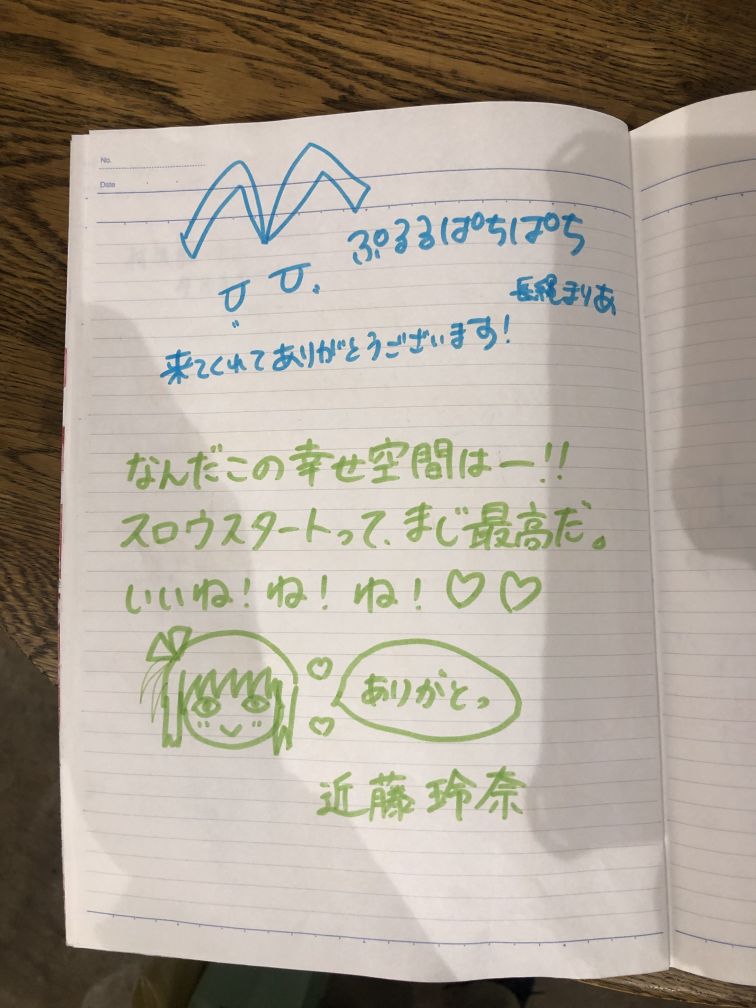 No.
Date
ぷるるぱちぱち
長縄まりあ
来てくれてありがとうございます!
なんだこの幸せ空間はー!!
スロウスタートって、まじ最高だ。
いいね!ね!ね!♡♡
ありがとっ
近藤玲奈